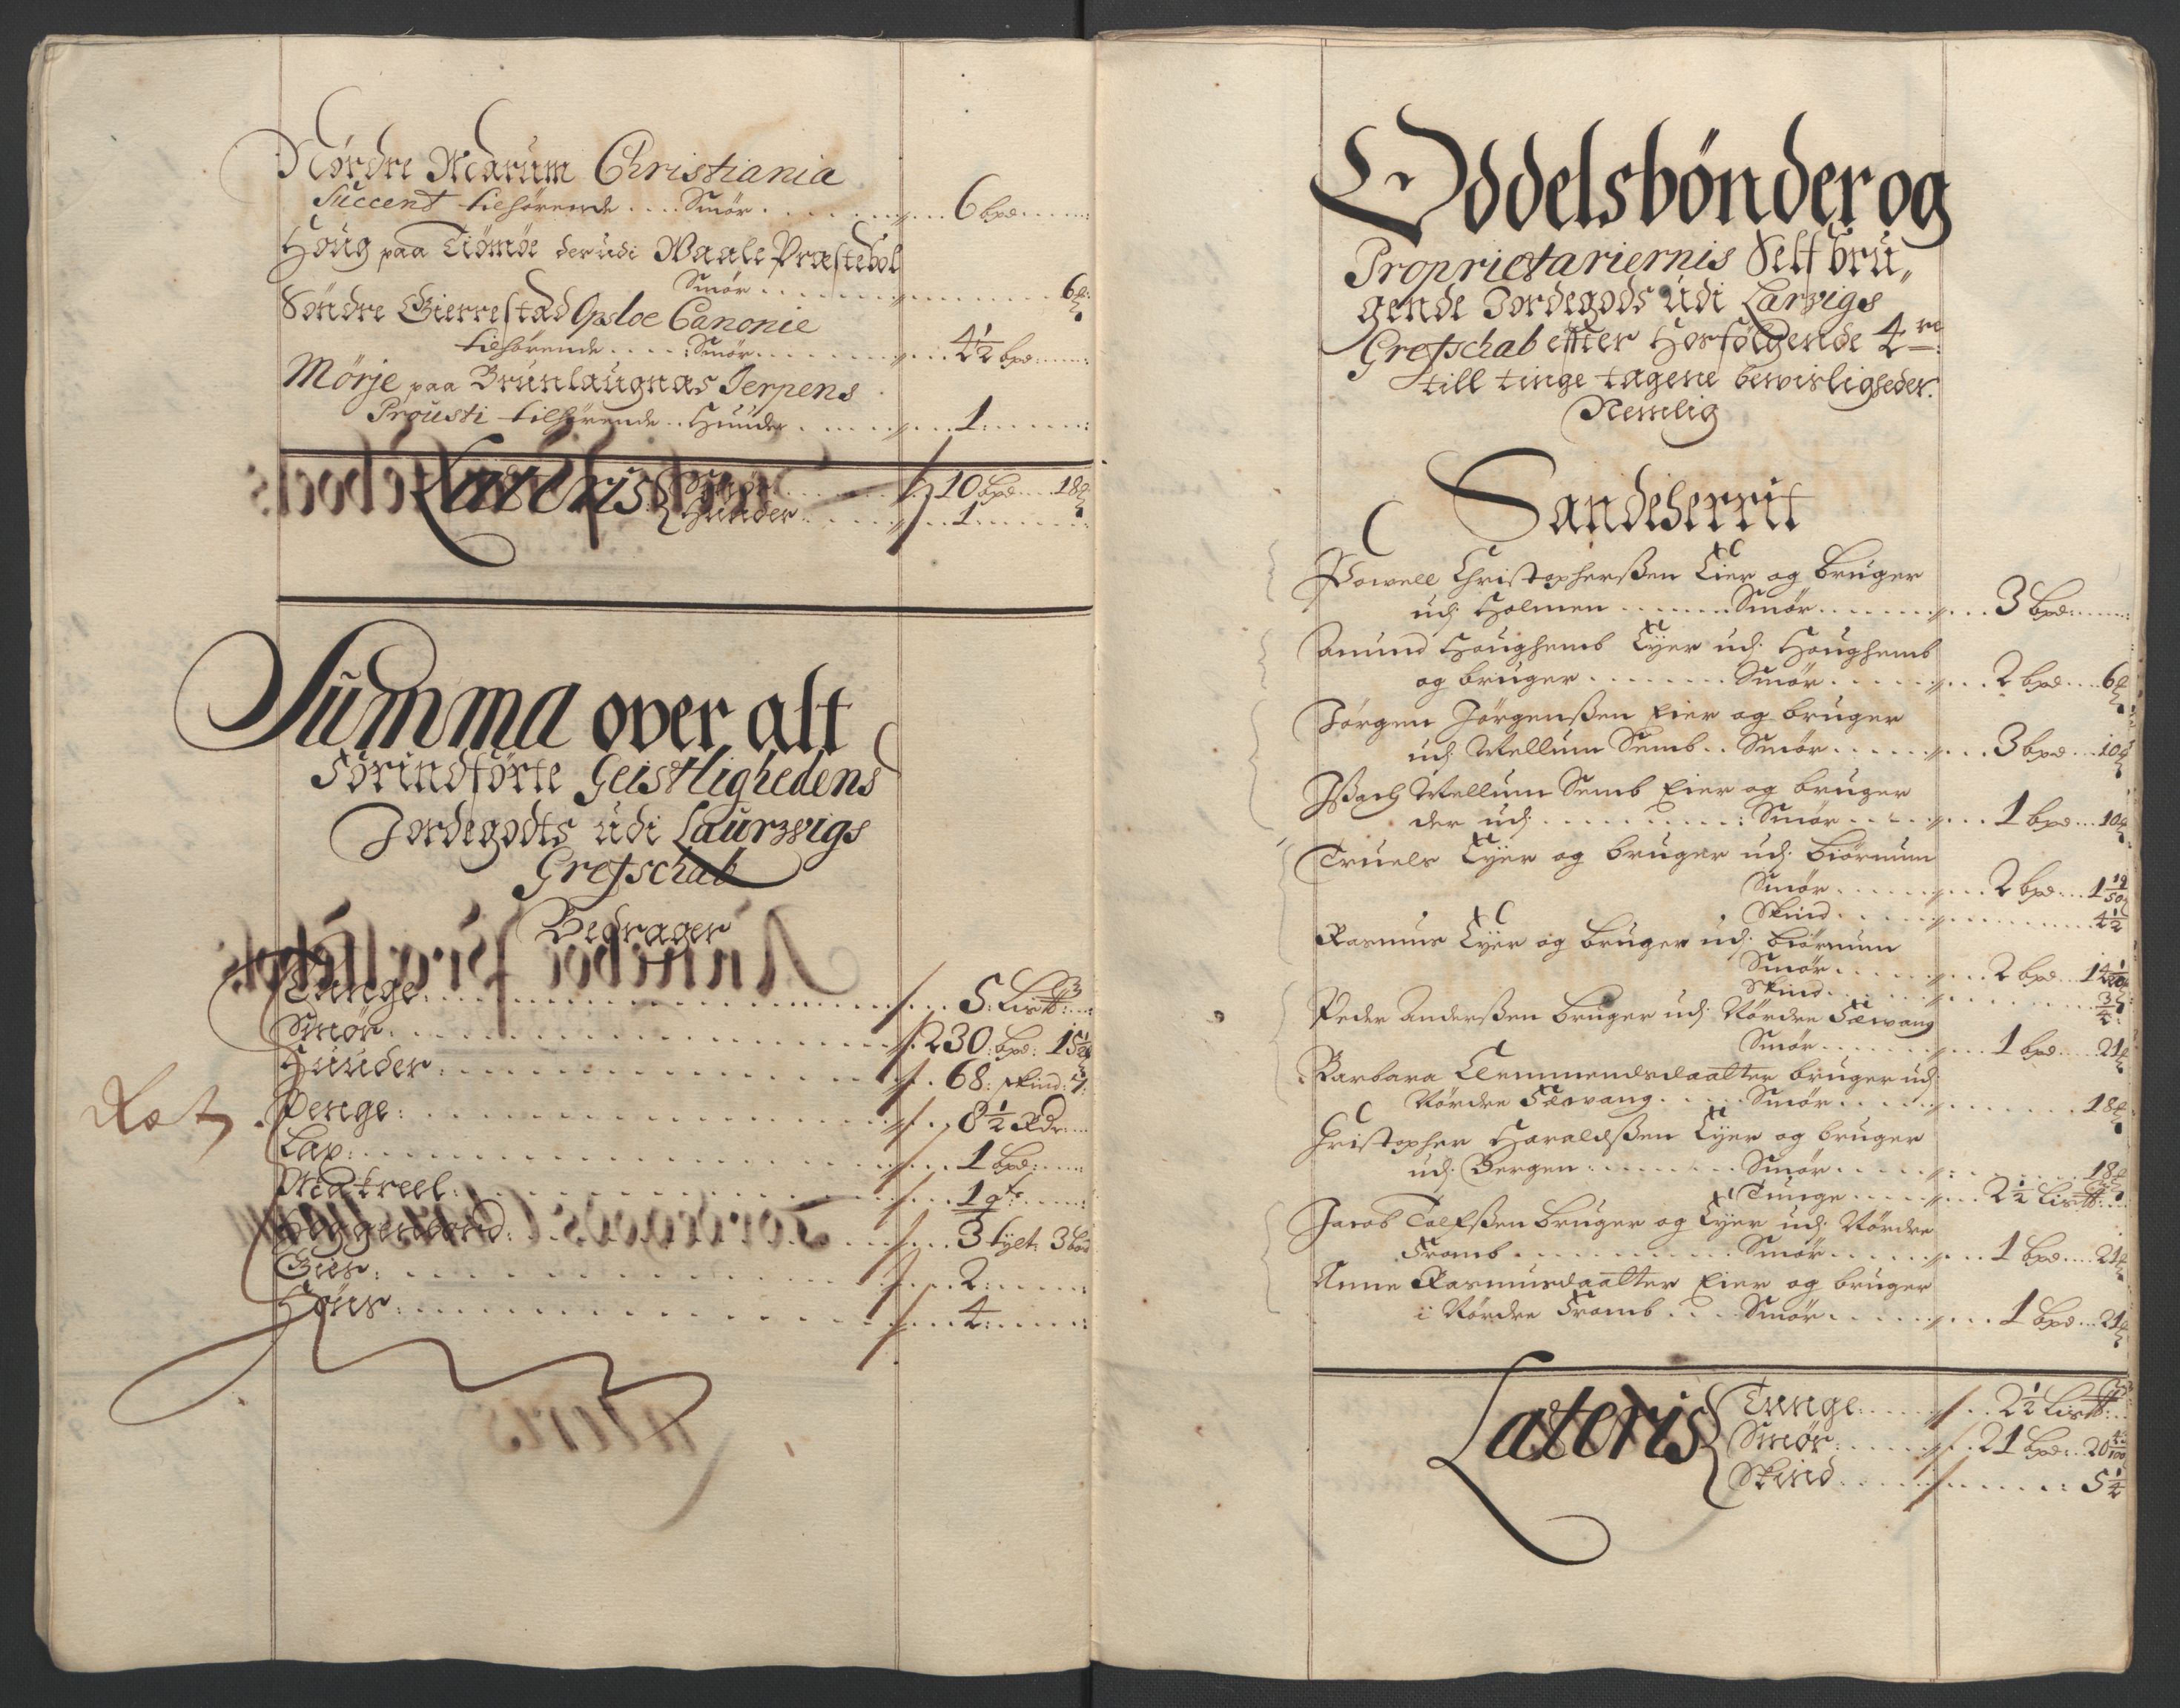 Nordre Marum Christiania
Succent tilhörende .... Smör ........ 6 bpd
Houg paa Tiömöe der udi Waale Præstebol
Smör ........ 6 ℔
Söndre Gierrestad Opsloe Canonie
tilhörende .... Smör ........ 4½ bpd
Mörje paa Brunlaugnæs Jerpens
Prousti tilhörende .. Huuder ........ 1
Lateris Smör ........ 10 bpd .. 18 ℔
Huuder ........ 1
Summa over alt
Forindförte Geistlighedens
Jordegodts udi Laurwigs
Grefschab
Bedrager
Tunge ........ 5 Lis℔
Smör ........ 230 bpd: 15½ ℔
Huuder ........ 68: skind:
Penge ........ 8½ Rdr
Lax ........ 1 bpd
........ 1 qt
........ 3 tylt: 3 bord
........ 2
........ 4
Oddelsbönder og
Proprietariernis Self bru„
gende Jordegods udi Larwigs
Grefschab effter Hosfölgende 4re
till tinge tagene bewisligheder.
Nemlig
Sandeherrit
Powell Christophersßen Eier og bruger
udj Holmen ........ Smör ........ 3 bpd
Amund Houghemb Eyer udj Houghemb
og bruger ........ Smör ........ 2 bpd .. 6 ℔
Jörgen Jörgensßen Eier og bruger
udj Mellum Semb .. Smör ........ 3 bpd .. 10 ℔
Mellum Semb Eier og bruger
der udj ........ Smör ........ 1 bpd .. 10 ℔
Truels Eyer og bruger udj Biörnum
Smör ........ 2 bpd .. 1 19/50 ℔
Skind ........ 4½
Rasmus Eyer og bruger udj Biörnum
Smör ........ 2 bpd ..
Skind ........ ¾
Peder Andersßen bruger udj Nördre Fæwang
Smör ........ 1 bpd .. 21 ℔
Barbara Clemmendsdaatter bruger udj
Nördre Fæwang ........ Smör ........ 18 ℔
Christopher Haraldsßen Eyer og bruger
udj Bergen ........ Smör ........ 18 ℔
Tunge ........ 2½ Lis℔
Jacob Tolfsßen bruger og Eyer udj Nördre
Fromb ........ Smör ........ 1 bpd .. 21 ℔
Anne Rasmusdaatter Eier og bruger
i Nördre Fromb .... Smör ........ 1 bpd .. 21 ℔
Lateris Tunge ........ 2½ Lis℔
Smör ........ 21 bpd .. 20
Skind ........ 5¼